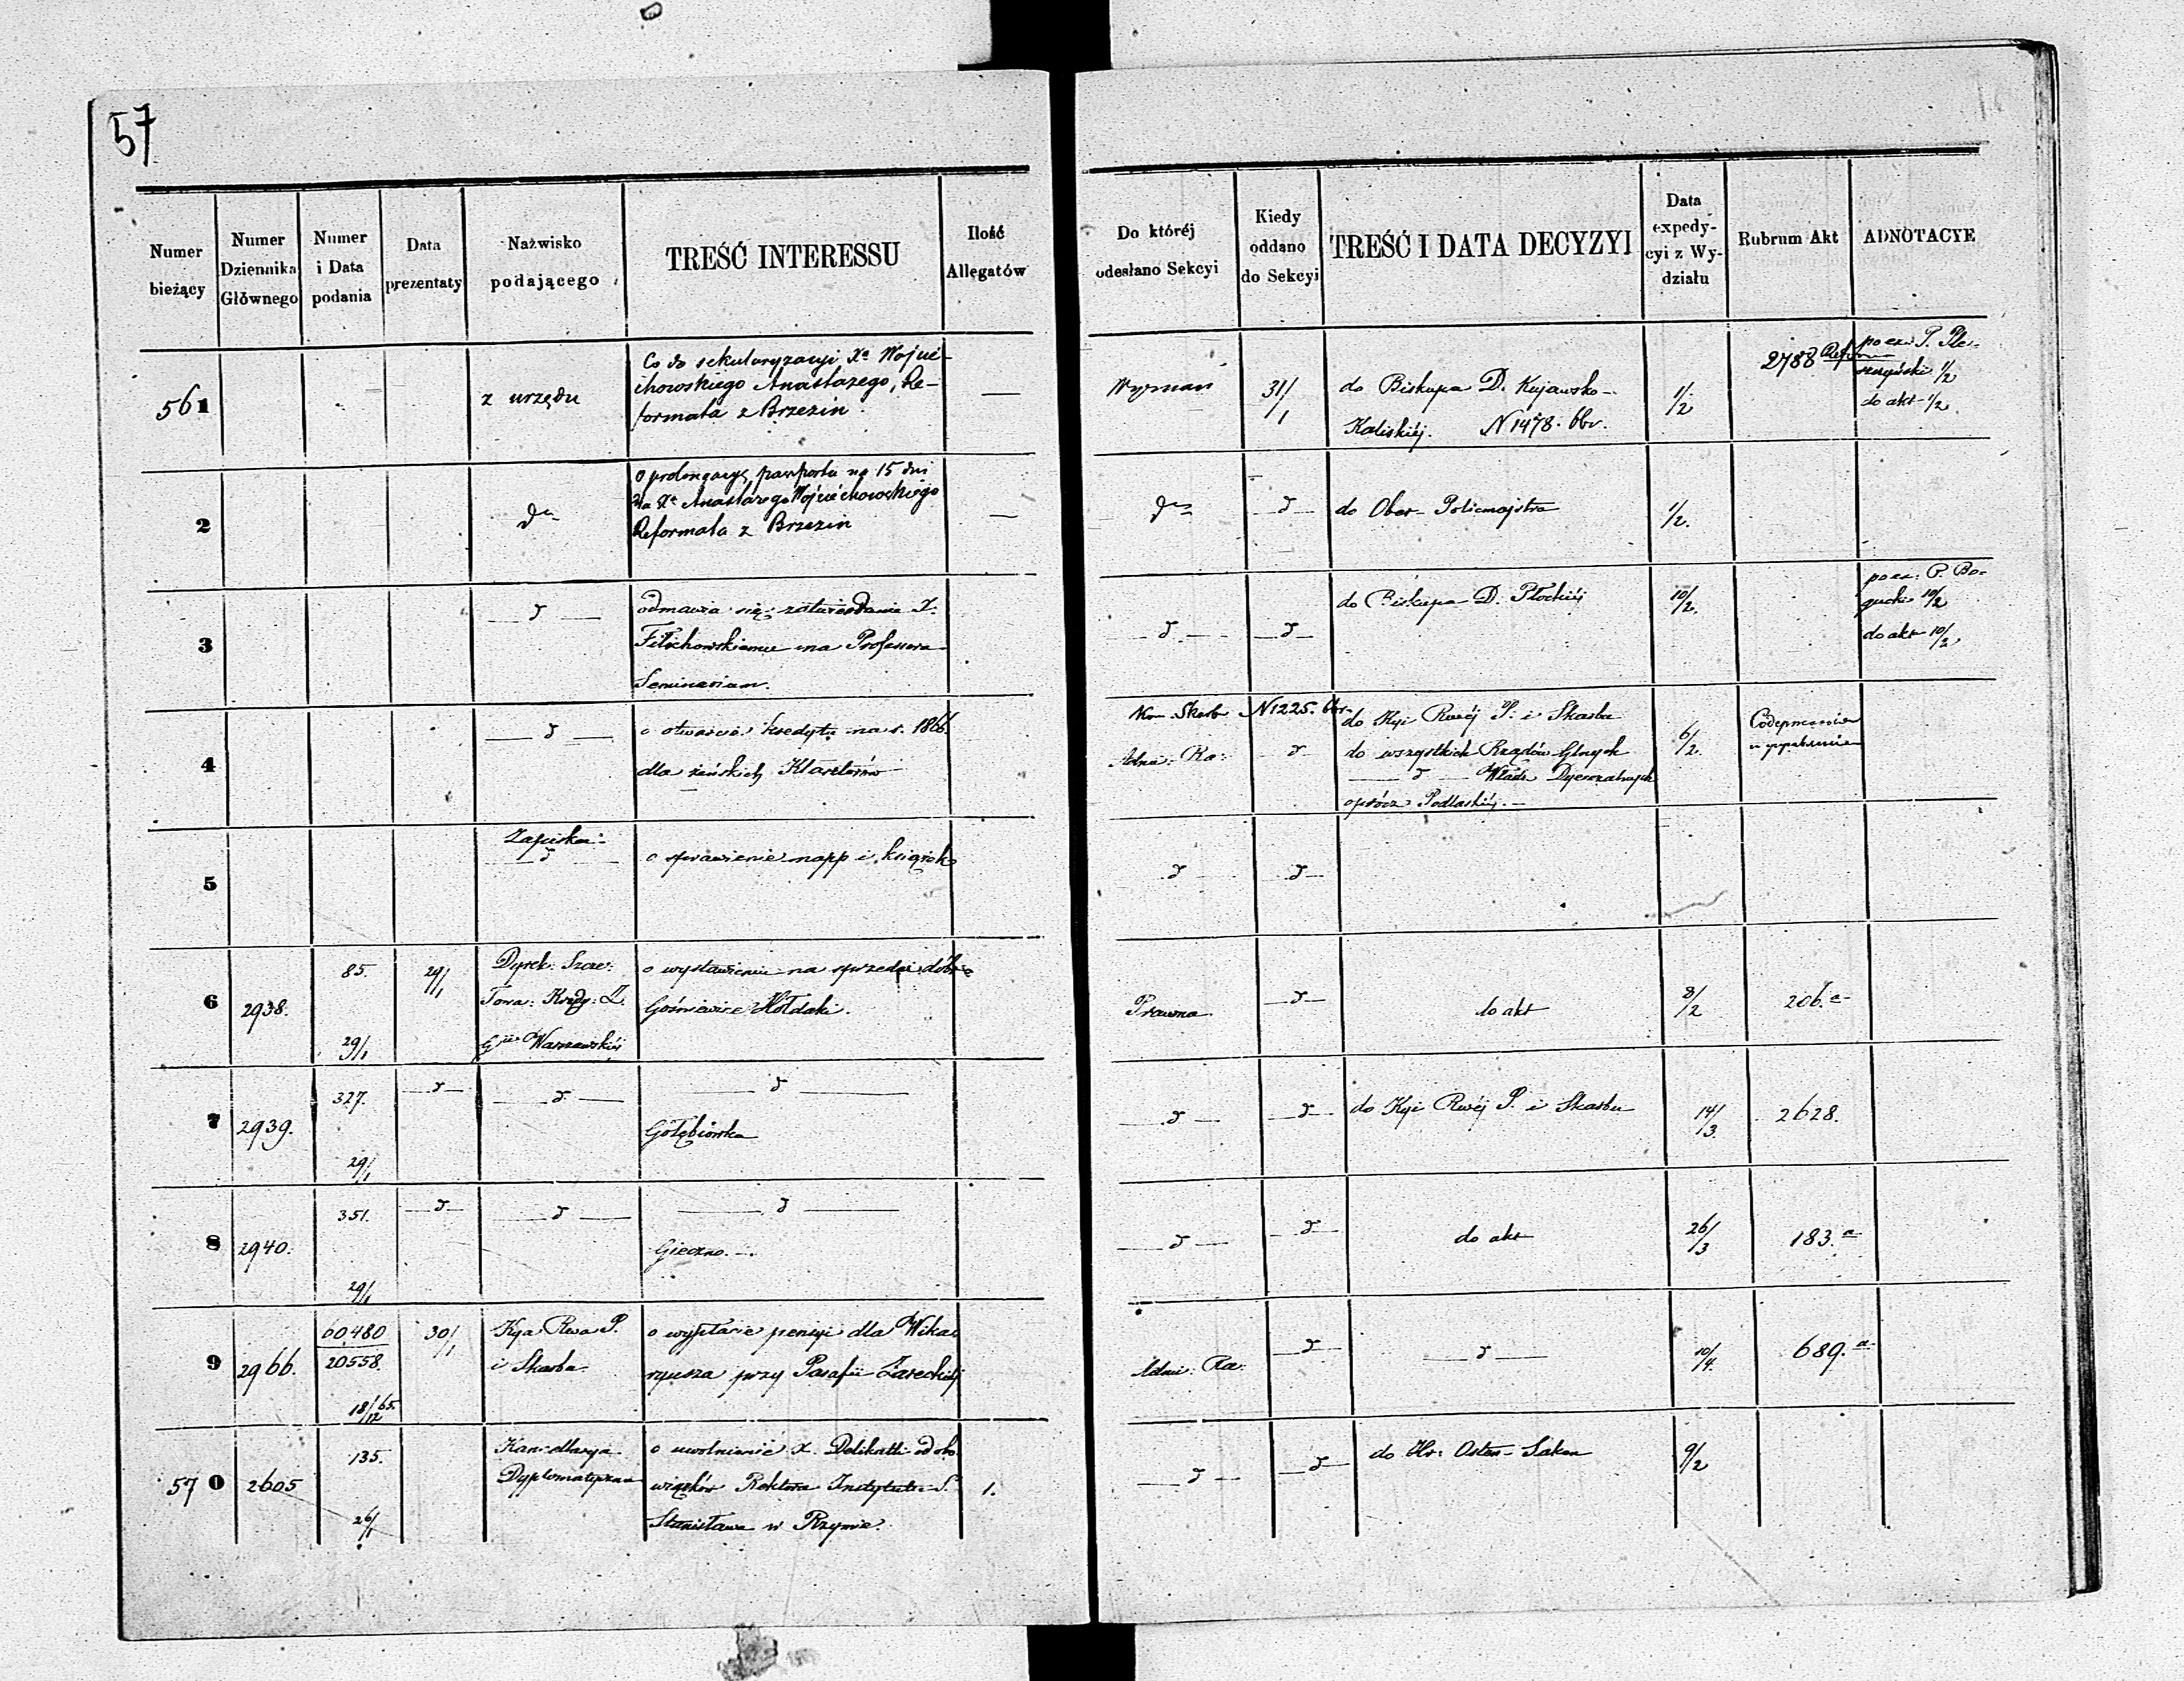 57
Numer bieżący
Numer Dziennika Głównego
Numer i Data podania
Data prezentaty
Nazwisko podającego
TREŚĆ INTERESSU
Ilość Allegatów
Do któréj odesłano Sekcyi
Kiedy oddano do Sekcyi
TREŚĆ I DATA DECYZYI
Data expedycyi z Wydziału
Rubrum Akt
ADNOTACYE
561
z urzędu
Co do sekularyzacyi Xa Wojcie-
chowskiego Anastazego, Re-
formata z Brzezin.
—
Wyznań
31/1
do Biskupa D. Kujawsko-
Kaliskiéj. N 1478. bbr.
1/2
2788
po cz. P.
1/2
do akt 1/2
2
dto
o prolongacyę paszportu na 15 dni
dla Xa Anastazego Wojciechowskiego
Reformata z Brzezin
—
dto
— d —
do Ober-Policmajstra
1/2.
3
— d —
odmawia się zatwierdzenia X.
Filochowskiemu na Professora
Seminarium.
— d —
— d —
do Biskupa D. Płockiéj
10/2.
po cz: P. Bo-
gucki 10/2
do akt 10/2
4
— d —
o otwarcie kredytu na r. 1866.
dla żeńskich Klasztorów
Skarb N 1225. bbr.
Admi: Ra:
d
do Kyi Rwéj P. i Skarbu
do wszystkich Rządów Glnych
— d — Władz Dyecezalnych
oprócz Podlaskiéj. —
6/2.
5
Zapiska
— d —
o sprawienie mapp i książek
d —
— d —
6
2938.
85.
29/1
29/1
Dyrek: Szcze:
Towa: Kredy: Z.
Gii Warszawskiéj
o wystawieniu na sprzedaż dóbr
Gośniewice Hołdaki.
Prawna.
— d —
do akt
8/2
206. a
7
2939.
327.
29/1
— d —
— d —
— d —
Gołębiówka
— d —
— d —
do Kyi Rwéj P. i Skarbu
14/3.
2628.
8
2940.
351.
29/1
— d —
— d —
— d —
Gieczno. —.
— d —
— d —
do akt
26/3
183. a
9
2966.
60480
20558.
18/12 65.
30/1
Kya Rwa P.
i Skarbu
o wypłacie pensyi dla Wika-
ryusza przy Parafii Zareckiéj
Admi: Ra:
— d —
— d —
10/4.
689. a
570
2605
135.
26/1
Kancellarya
Dyplomatyczna
o uwolnienie X. Delikatti od obo-
wiązków Rektora Instytutu S.
Stanisława w Rzymie.
1.
— d —
— d —
do Hr: Osten-Saken
9/2